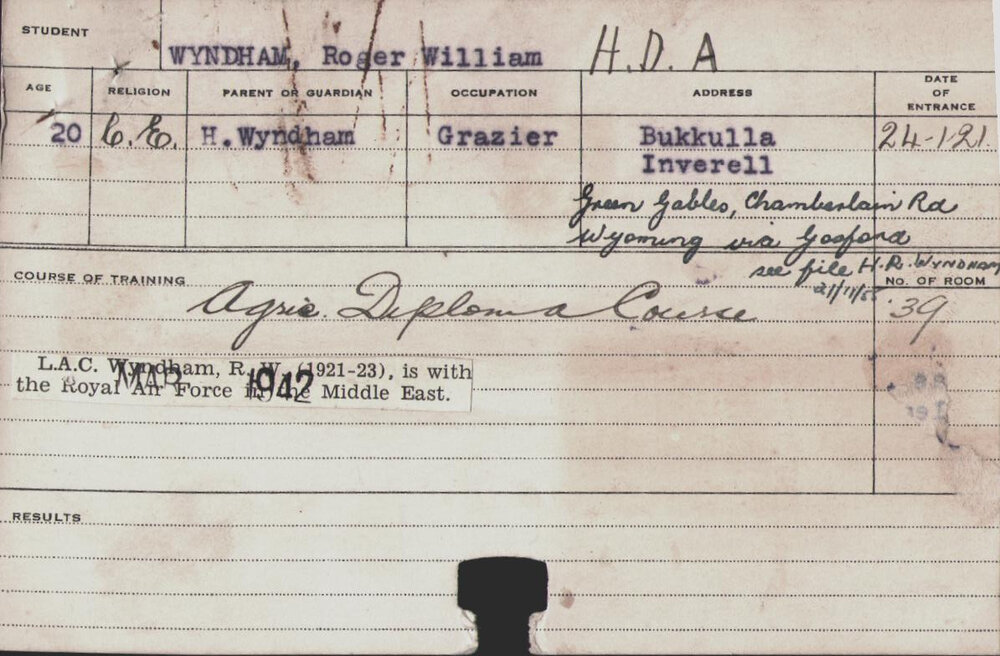 STUDENT
WYNDHAM, Roger William H.D.A
AGE RELIGION PARENT OR GUARDIAN OCCUPATION ADDRESS DATE OF ENTRANCE
20 C.E. H.Wyndham Grazier Bukkulla 24-1-21.
Inverell
Green Gables, Chamberlain Rd
Wyoming via Gosford
see file H.R. WYNDHAM
21/11/
COURSE OF TRAINING NO. OF ROOM
Agric. Diploma Course 39
L.A.C. Wyndham, R. W. (1921-23), is with
the Royal Air Force in the Middle East.
MAR 1942
RESULTS